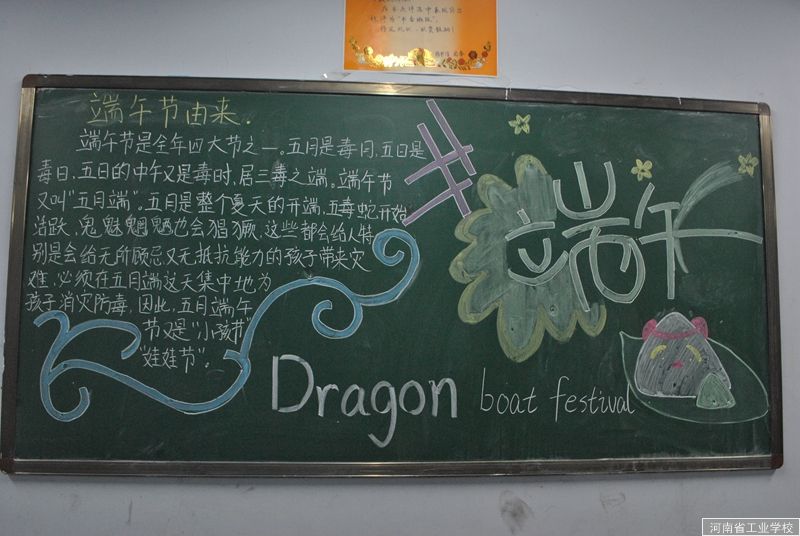 端午节由来.
端午节是全年四大节之一。五月是毒月,五日是
毒日,五日的中午又是毒时,居三毒之端。端午节
又叫"五月端"。五月是整个夏天的开端,五毒蛇开始
活跃,鬼魅魍魉也会猖獗,这些都会给人特
别是会给无所顾忌又无抵抗能力的孩子带来灾
难,必须在五月端这天集中地为
孩子消灾防毒,因此,五月端午
节又是"小孩节"
"娃娃节"。
端午
Dragon boat festival
河南省工业学校